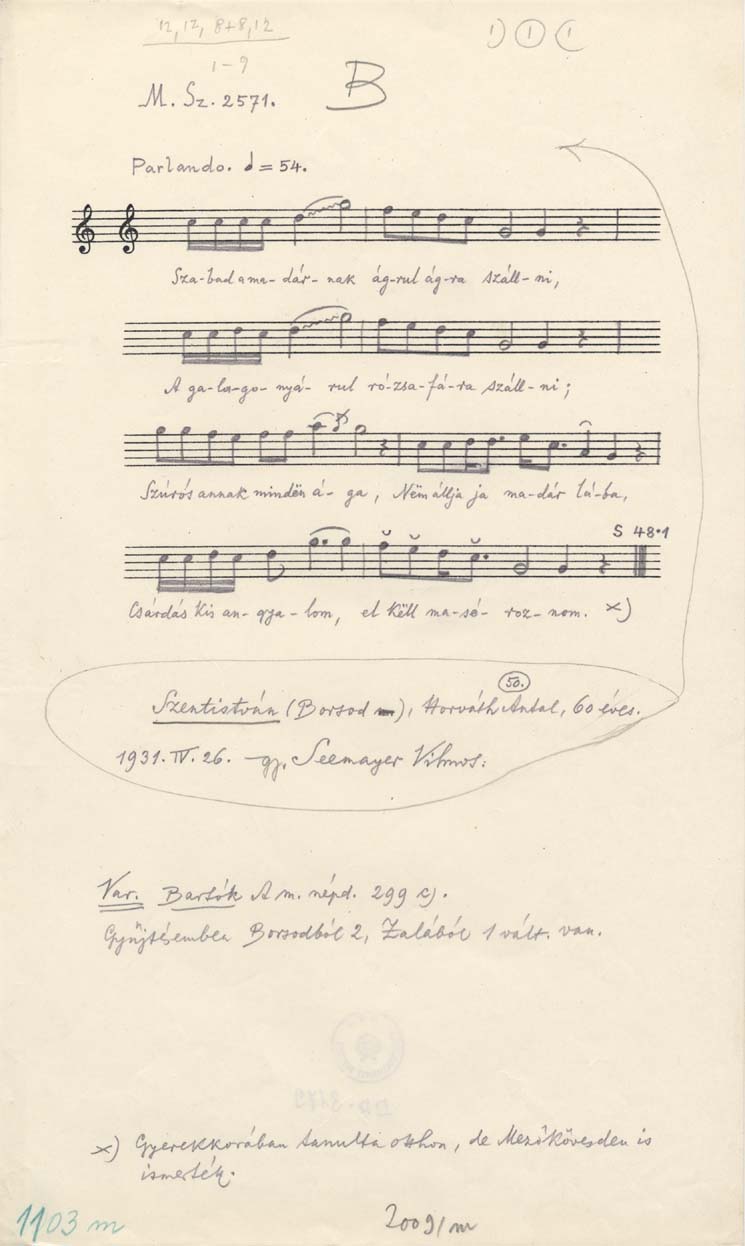 12, 12, 8+8, 12
1) 1 (1
1-9
M. Sz. 2571.
B
Parlando. = 54.
Sza-bad a ma-dár-nak ág-rul ág-ra száll-ni,
A ga-la-go-nyá-rul ró-zsa-fá-ra száll-ni;
Szúrós annak mindën á-ga, Nëm állja ja ma-dár lá-ba,
S 48•1
Csárdás kis an-gya-lom, el këll ma-sé-roz-nom. x)
50.
Szentistván (Borsod m), Horváth Antal, 60 éves.
1931. IV. 26. gy. Seemayer Vilmos:
Var. Bartók A m. népd. 299 c).
Gyűjtésemben Borsodból 2, Zalából 1 vált. van.
x) Gyerekkorában tanulta otthon, de Mezőkövesden is
ismerték.
1103 m
2009/m